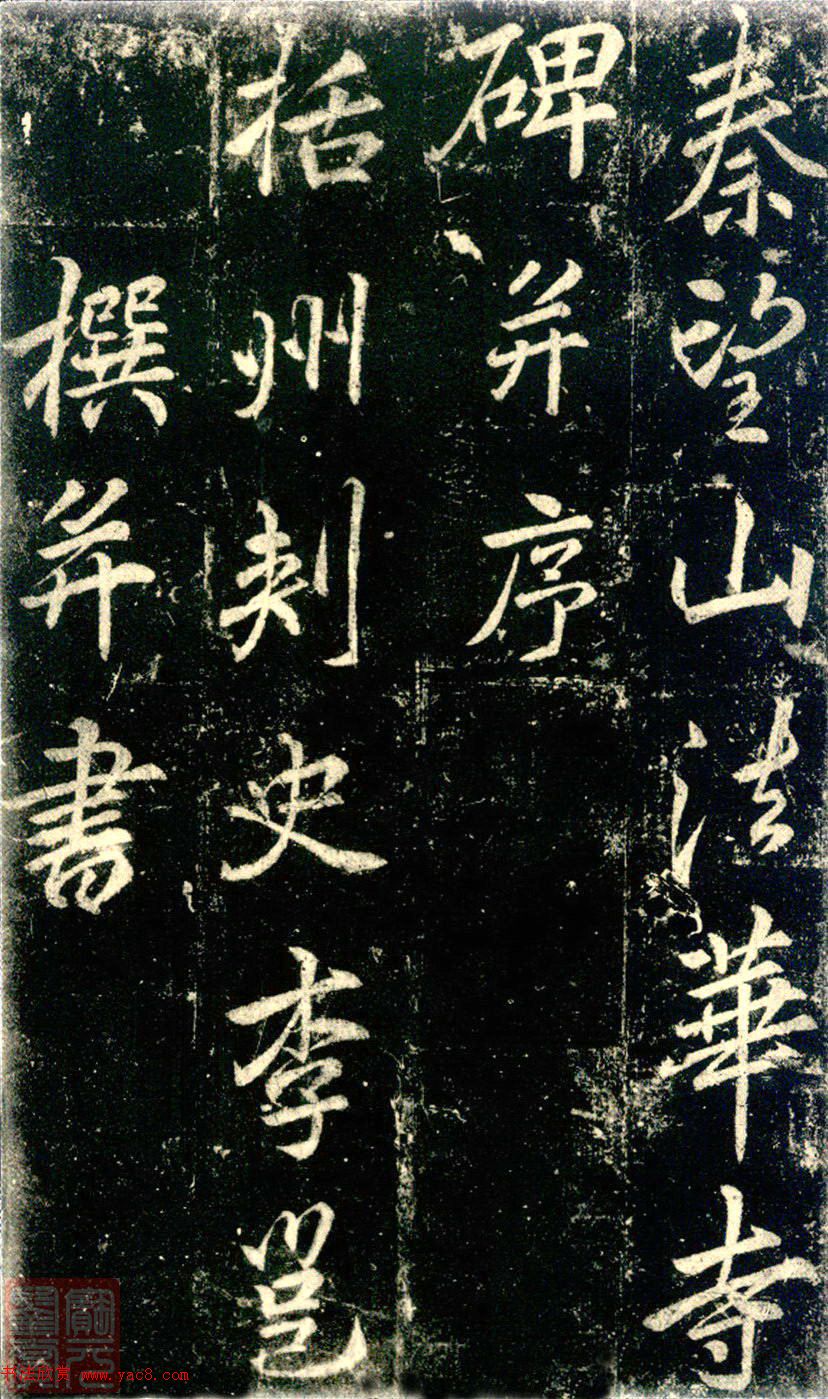 秦望山法華寺
碑并序
括州刺史李邕
撰并書
书法欣赏 www.yac8.com